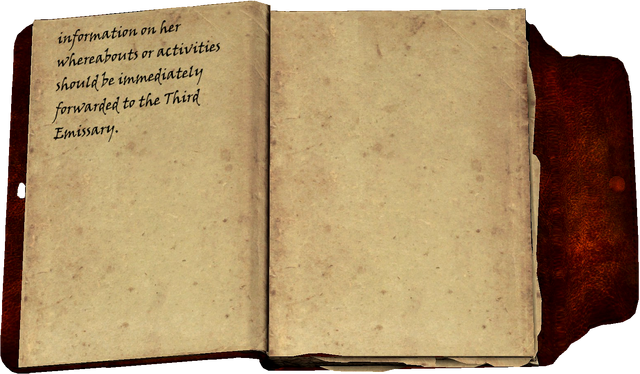 information on her
whereabouts or activities
should be immediately
forwarded to the Third
Emissary.